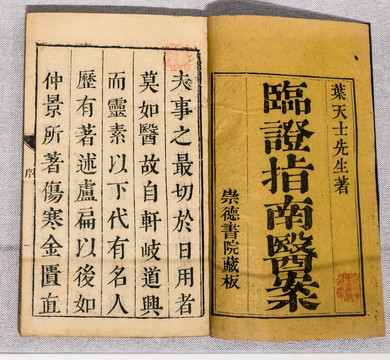 葉天士先生著
臨證指南醫案
崇德書院藏板
夫事之最切於日用者
莫如醫故自軒岐道興
而靈素以下代有名人
歷有著述盧扁以後如
仲景所著傷寒金匱直
序